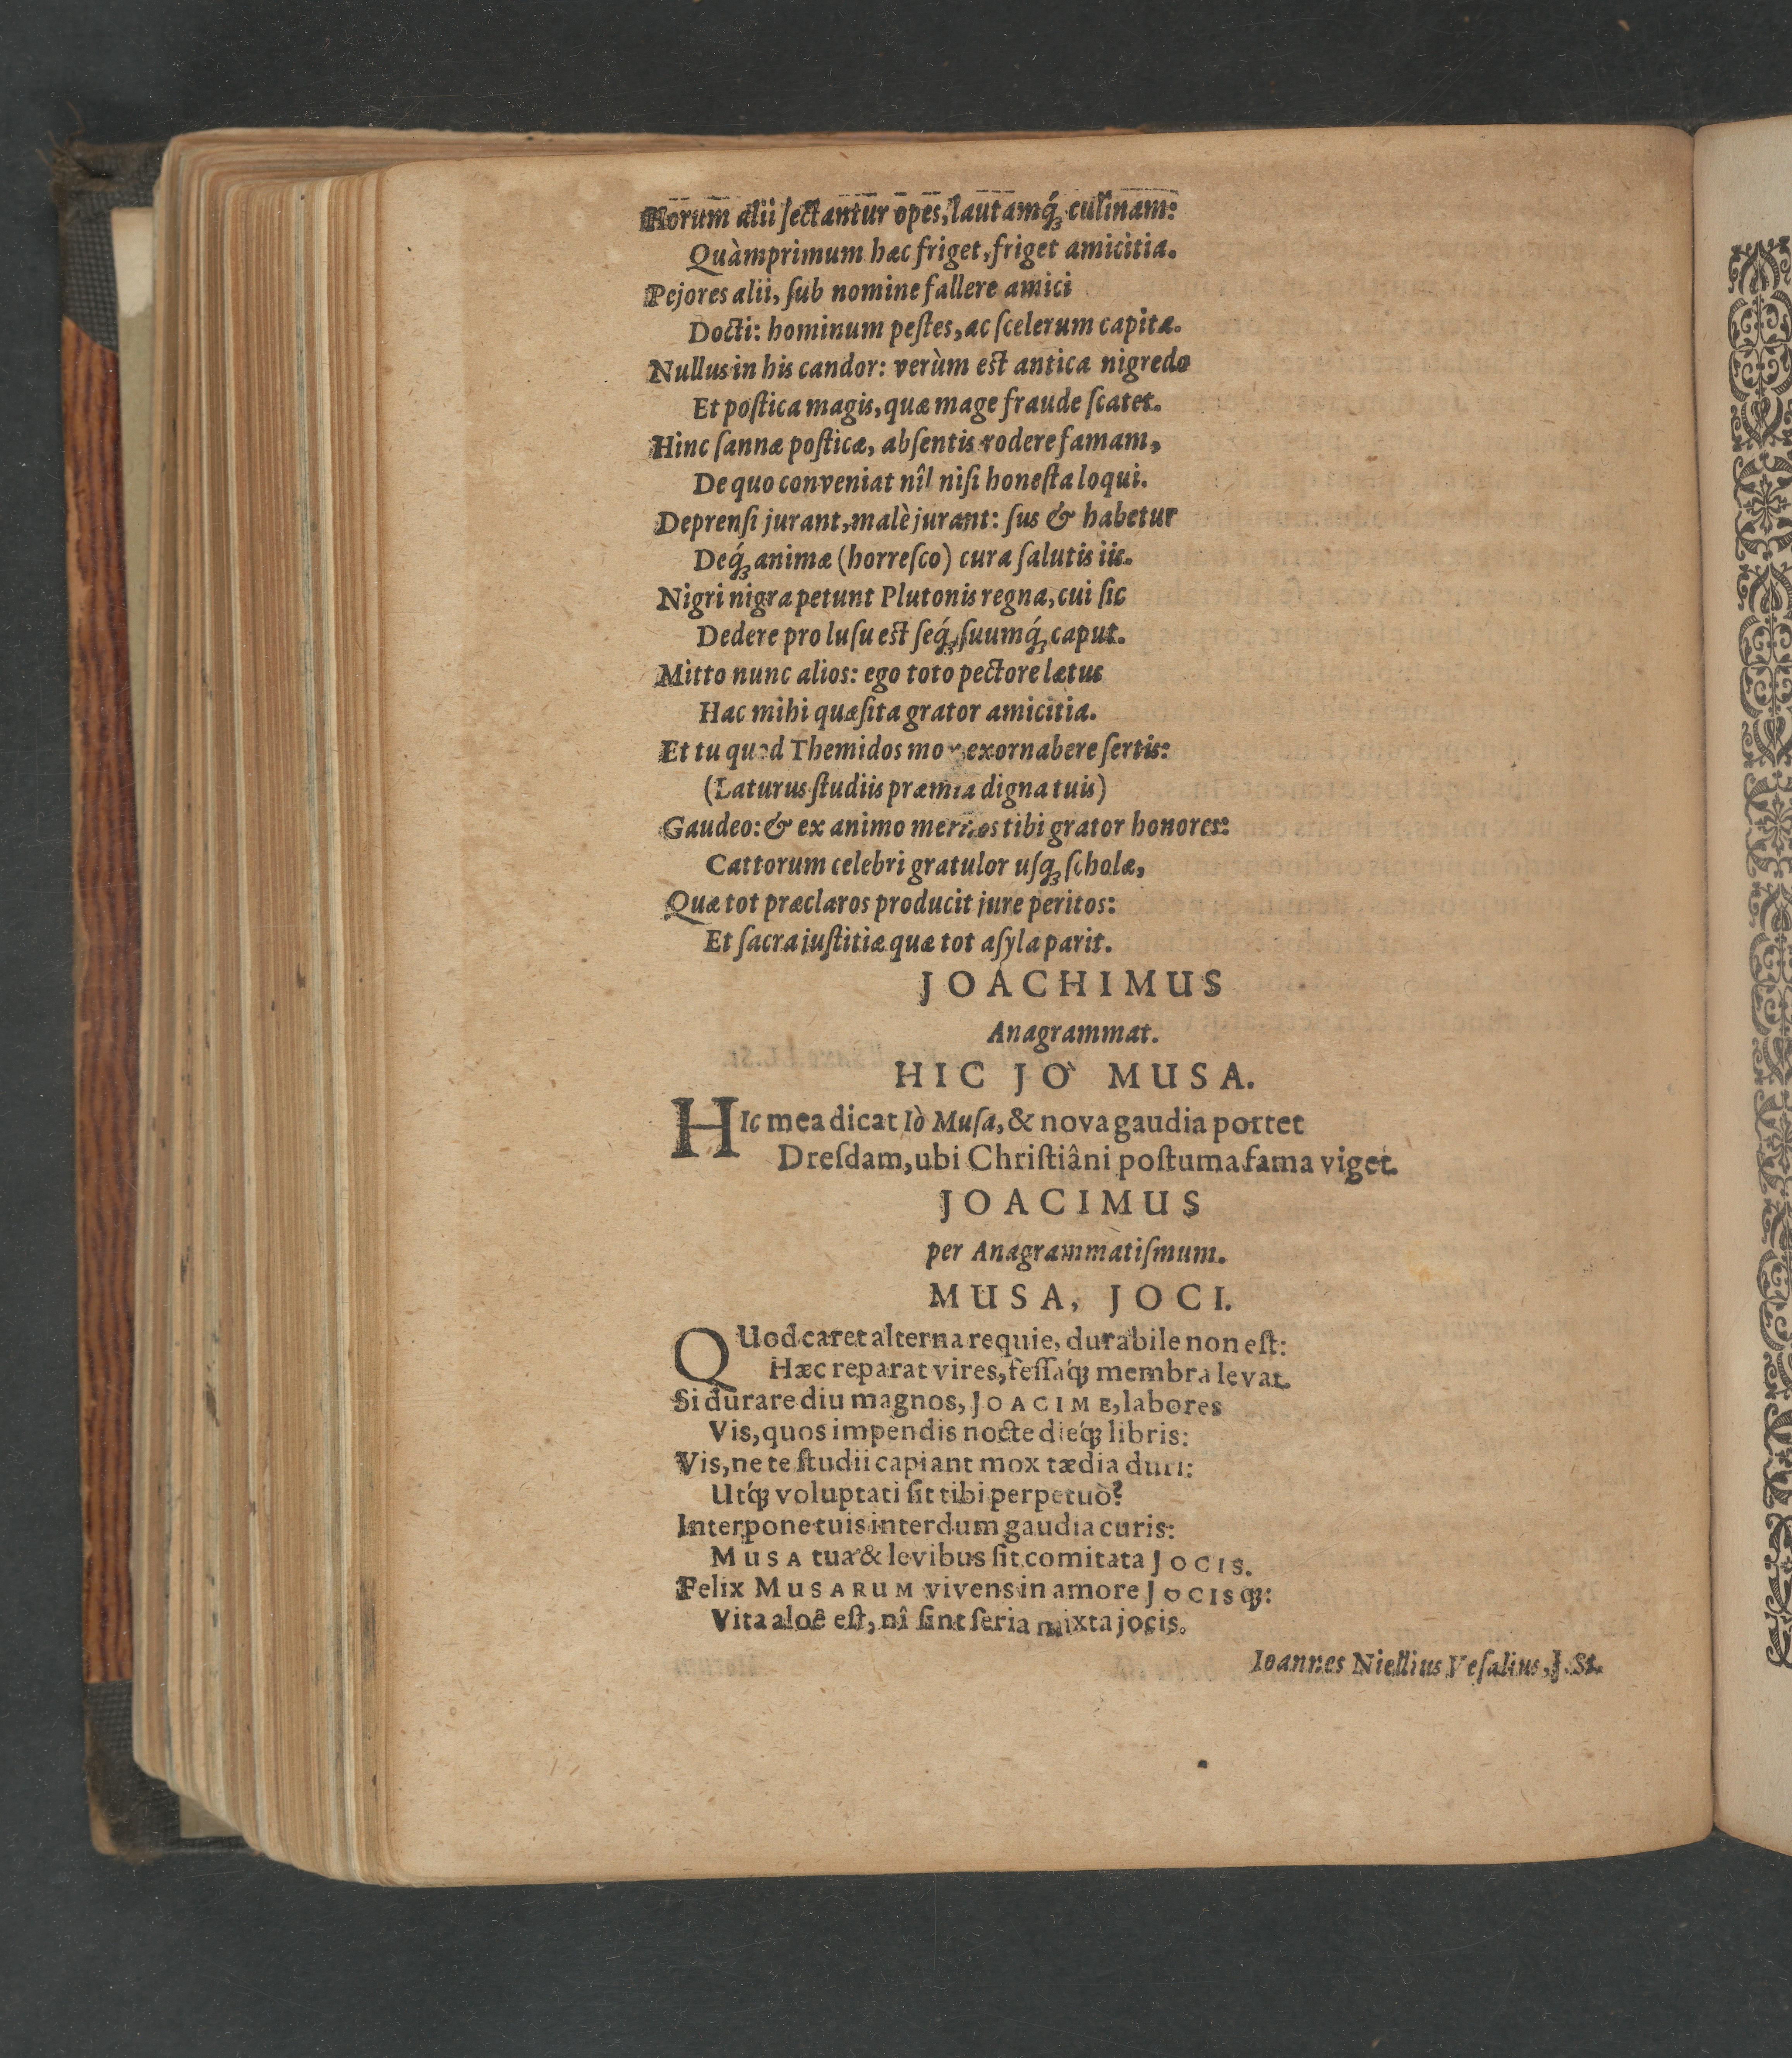 Horum alii ſectantur opes, lautamq́ꝫ culinam:
Quàmprimum hæc friget, friget amicitia.
Pejores alii, ſub nomine fallere amici
Docti: hominum peſtes, ac ſcelerum capita.
Nullus in his candor: verùm est antica nigredo
Et poſtica magis, quæ mage fraude ſcatet.
Hinc ſannæ poſticæ, abſentis rodere famam,
De quo conveniat nîl niſi honeſta loqui.
Deprenſi jurant, malè jurant: ſus & habetur
Deq́ꝫ animæ (horreſco) cura ſalutis iis.
Nigri nigra petunt Plutonis regna, cui ſic
Dedere pro luſu est ſeq́ꝫ, ſuumq́ꝫ caput.
Mitto nunc alios: ego toto pectore lætus
Hac mihi quæſita grator amicitia.
Et tu quod Themidos mox exornabere ſertis:
(Laturus ſtudiis præmia digna tuis)
Gaudeo: & ex animo meritos tibi grator honores:
Cattorum celebri gratulor uſqꝫ ſcholæ,
Quæ tot præclaros producit jure peritos:
Et ſacra juſtitiæ quæ tot aſyla parit.
JOACHIMUS
Anagrammat.
HIC JO` MUSA.
HIc mea dicat Iò Muſa, & nova gaudia portet
Dreſdam, ubi Chriſtiâni poſtuma fama viget.
JOACIMUS
per Anagrammatiſmum.
MUSA, JOCI.
QUod caret alterna requie, durabile non eſt:
Hæc reparat vires, feſſaq́ꝫ membra levat.
Si durare diu magnos, JOACIME, labores
Vis, quos impendis nocte dieq́ꝫ libris:
Vis, ne te ſtudii capiant mox tædia duri:
Utq́ꝫ voluptati ſit tibi perpetuò?
Interpone tuis interdum gaudia curis:
MUSA tua & levibus ſit comitata JOCIS.
Felix MUSARUM vivens in amore JOCISqꝫ:
Vita aloê eſt, nî ſint ſeria mixta jocis.
Ioannes Niellius Veſalius, J. St.